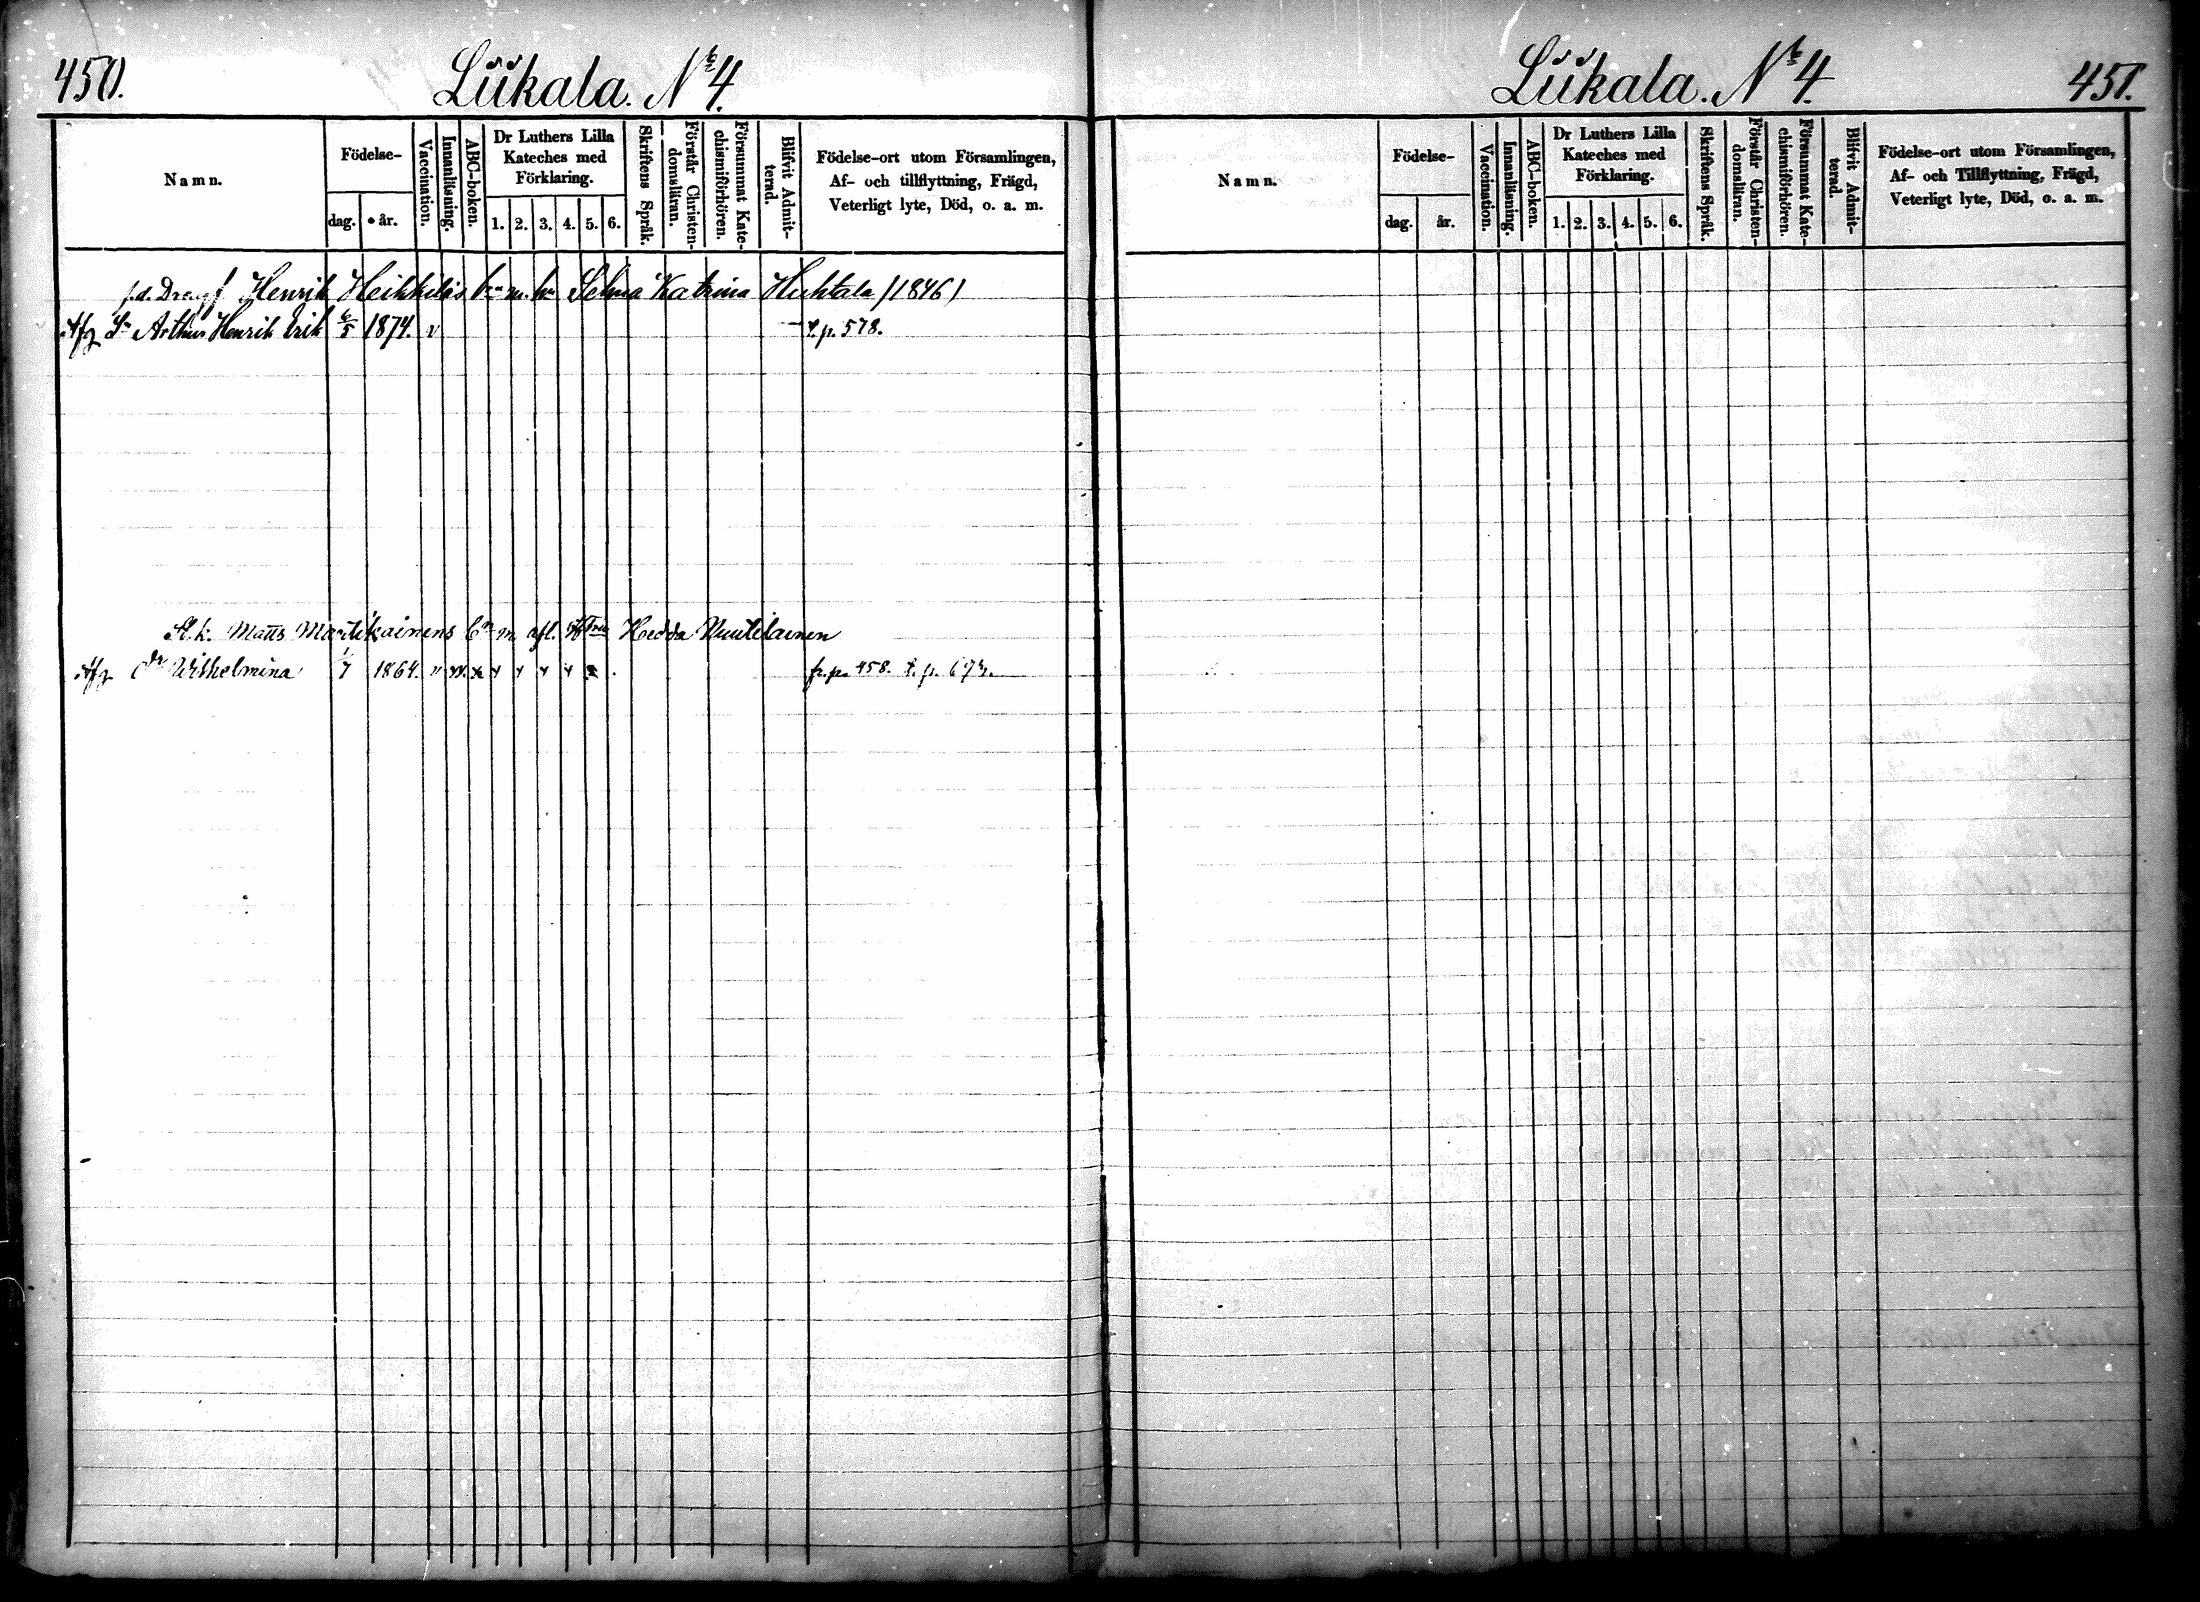 450.
Liikala. No 4.
Namn.
Födelse-
dag.
år.
Vaccination.
Innanläsning.
ABC-boken.
Dr Luthers Lilla
Kateches med
Förklaring.
1. 2. 3. 4. 5. 6.
Skriftens Språk.
Förstår Christen-
domsläran.
Försummat Kate-
chismiförhören.
Blifvit Admit-
terad.
Födelse-ort utom Församlingen,
Af- och tillflyttning, Frägd,
Veterligt lyte, Död, o. a. m.
f.d. Henrik Heikkiläs bn m. hu Selma Katrina Huhtala (1846)
Afg Sn Arthur Henrik Erik 6/5 1874. v t. p. 578.
Matts Martikainens bn m afl. Hedda Vuutilainen
Afg Dr Wilhelmina 1/7 1864. fr. p. 458. t. p.
Liikala. No 4.
451.
Namn.
Födelse-
dag.
år.
Vaccination.
Innanläsning.
ABC-boken.
Dr Luthers Lilla
Kateches med
Förklaring.
1. 2. 3. 4. 5. 6.
Skriftens Språk.
Förstår Christen-
domsläran.
Försummat Kate-
chismiförhören.
Blifvit Admit-
terad.
Födelse-ort utom Församlingen,
Af- och Tillflyttning, Frägd,
Veterligt lyte, Död, o. a. m.